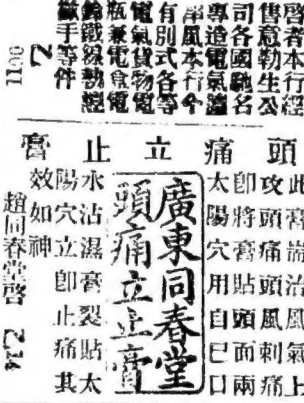 啓者本行經
售意勒生公
司各國馳名
專造電氣
風本行今
有別式各等
電氣貨物電
瓶兼電食電
鐵線
手等件
乙
1100
頭痛立止膏
此膏耑治風氣上
攻頭痛頭風刺痛
即將膏貼頭面兩
太陽穴用自已口
廣東同春堂
頭痛立止膏
水沾濕膏裂貼太
陽穴立即止痛其
效如神
趙同春堂啓